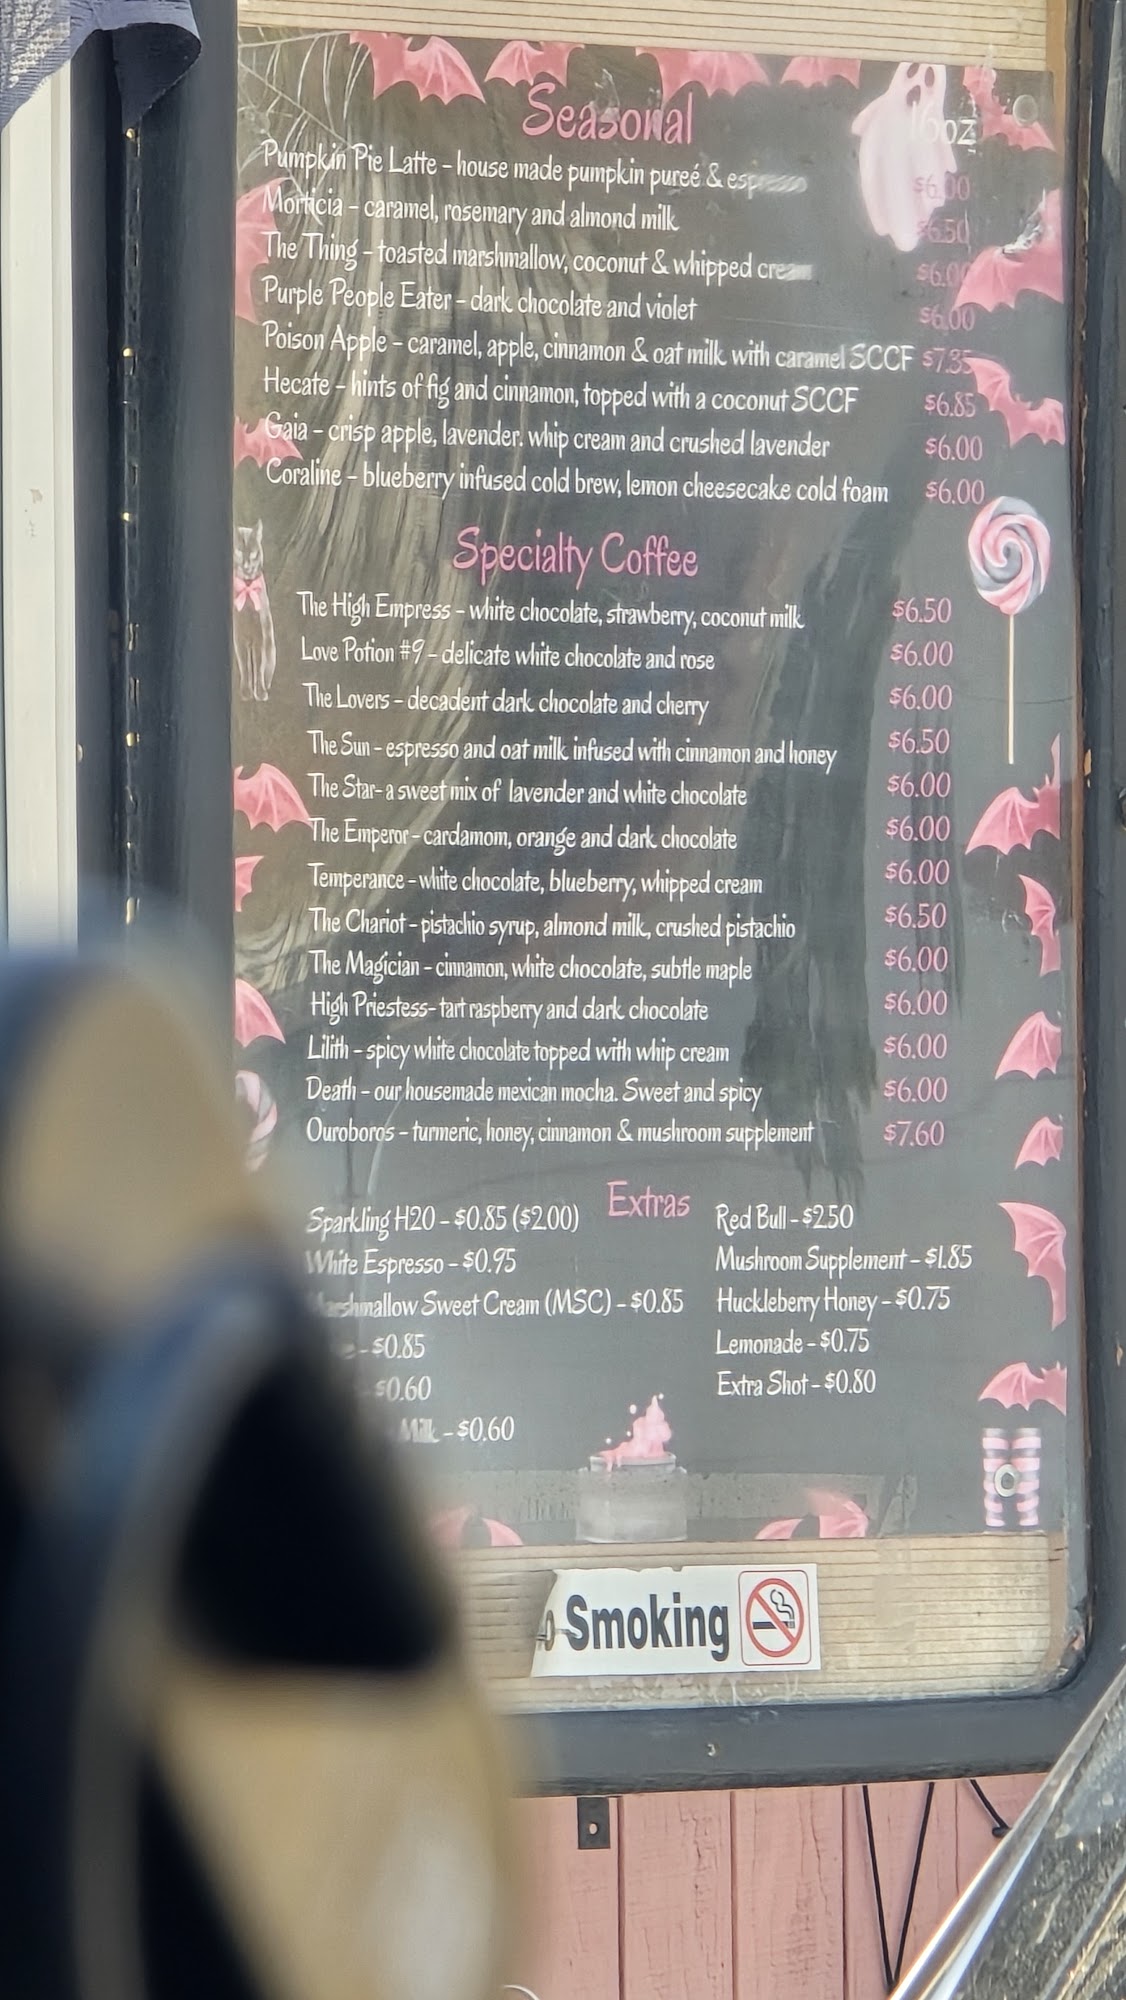 Seasonal
16oz
Pumpkin Pie Latte - house made pumpkin pureé & espresso $6.00
Morticia - caramel, rosemary and almond milk $6.50
The Thing - toasted marshmallow, coconut & whipped cream $6.00
Purple People Eater - dark chocolate and violet $6.00
Poison Apple - caramel, apple, cinnamon & oat milk with caramel SCCF $7.35
Hecate - hints of fig and cinnamon, topped with a coconut SCCF $6.85
Gaia - crisp apple, lavender. whip cream and crushed lavender $6.00
Coraline - blueberry infused cold brew, lemon cheesecake cold foam $6.00
Specialty Coffee
The High Empress - white chocolate, strawberry, coconut milk $6.50
Love Potion #9 - delicate white chocolate and rose $6.00
The Lovers - decadent dark chocolate and cherry $6.00
The Sun - espresso and oat milk infused with cinnamon and honey $6.50
The Star- a sweet mix of lavender and white chocolate $6.00
The Emperor - cardamom, orange and dark chocolate $6.00
Temperance - white chocolate, blueberry, whipped cream $6.00
The Chariot - pistachio syrup, almond milk, crushed pistachio $6.50
The Magician - cinnamon, white chocolate, subtle maple $6.00
High Priestess- tart raspberry and dark chocolate $6.00
Lilith - spicy white chocolate topped with whip cream $6.00
Death - our housemade mexican mocha. Sweet and spicy $6.00
Ouroboros - turmeric, honey, cinnamon & mushroom supplement $7.60
Extras
Sparkling H20 - $0.85 ($2.00)
White Espresso - $0.95
Marshmallow Sweet Cream (MSC) - $0.85
- $0.85
$0.60
Milk - $0.60
Red Bull - $2.50
Mushroom Supplement - $1.85
Huckleberry Honey - $0.75
Lemonade - $0.75
Extra Shot - $0.80
Smoking